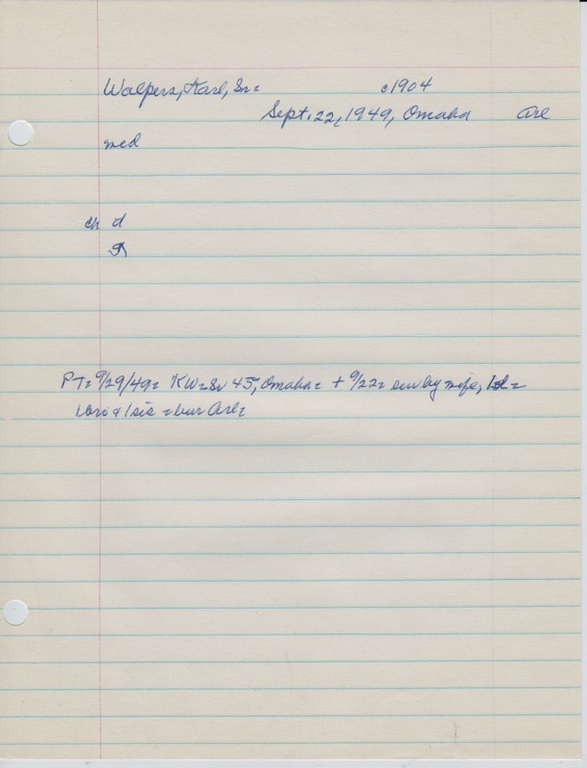 Walpers, Karl, Sr= c1904
Sept. 22, 1949, Omaha Arl
med
ch d
PT= 9/29/49= KW=Sr 45, Omaha= + 9/22= sur by wife,
bro & 1 sis = bur Arl=